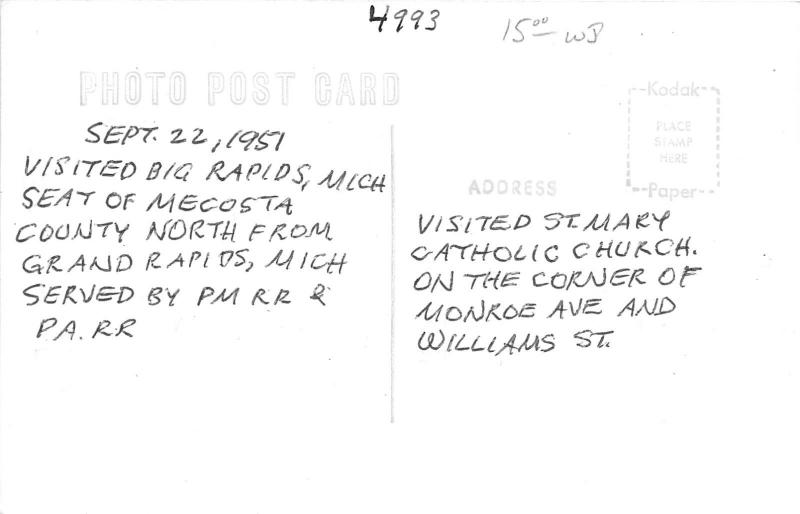 4993
15.00 WB
PHOTO POST CARD
SEPT. 22, 1951
VISITED BIG RAPIDS, MICH
SEAT OF MECOSTA
COUNTY NORTH FROM
GRAND RAPIDS, MICH
SERVED BY PM RR &
PA. RR
--Kodak--
PLACE
STAMP
HERE
--Paper--
ADDRESS
VISITED ST. MARY
CATHOLIC CHURCH.
ON THE CORNER OF
MONROE AVE AND
WILLIAMS ST.